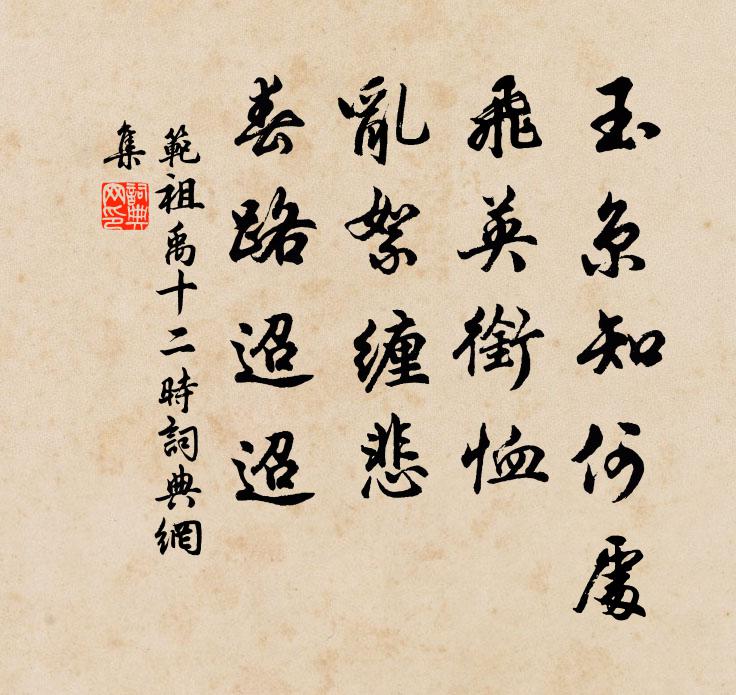 玉京知何處
飛英銜恤
亂絮纏悲
春路迢迢
範祖禹十二時詞典網
集
詞典
网印